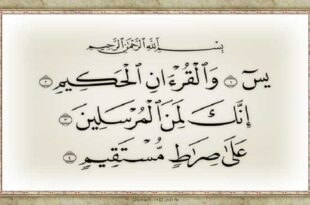 بِسْمِ ٱللَّهِ ٱلرَّحْمَٰنِ ٱلرَّحِيمِ
يسٓ ١ وَٱلْقُرْءَانِ ٱلْحَكِيمِ ٢
إِنَّكَ لَمِنَ ٱلْمُرْسَلِينَ ٣
عَلَىٰ صِرَٰطٍ مُّسْتَقِيمٍ ٤
Quran-HD.com